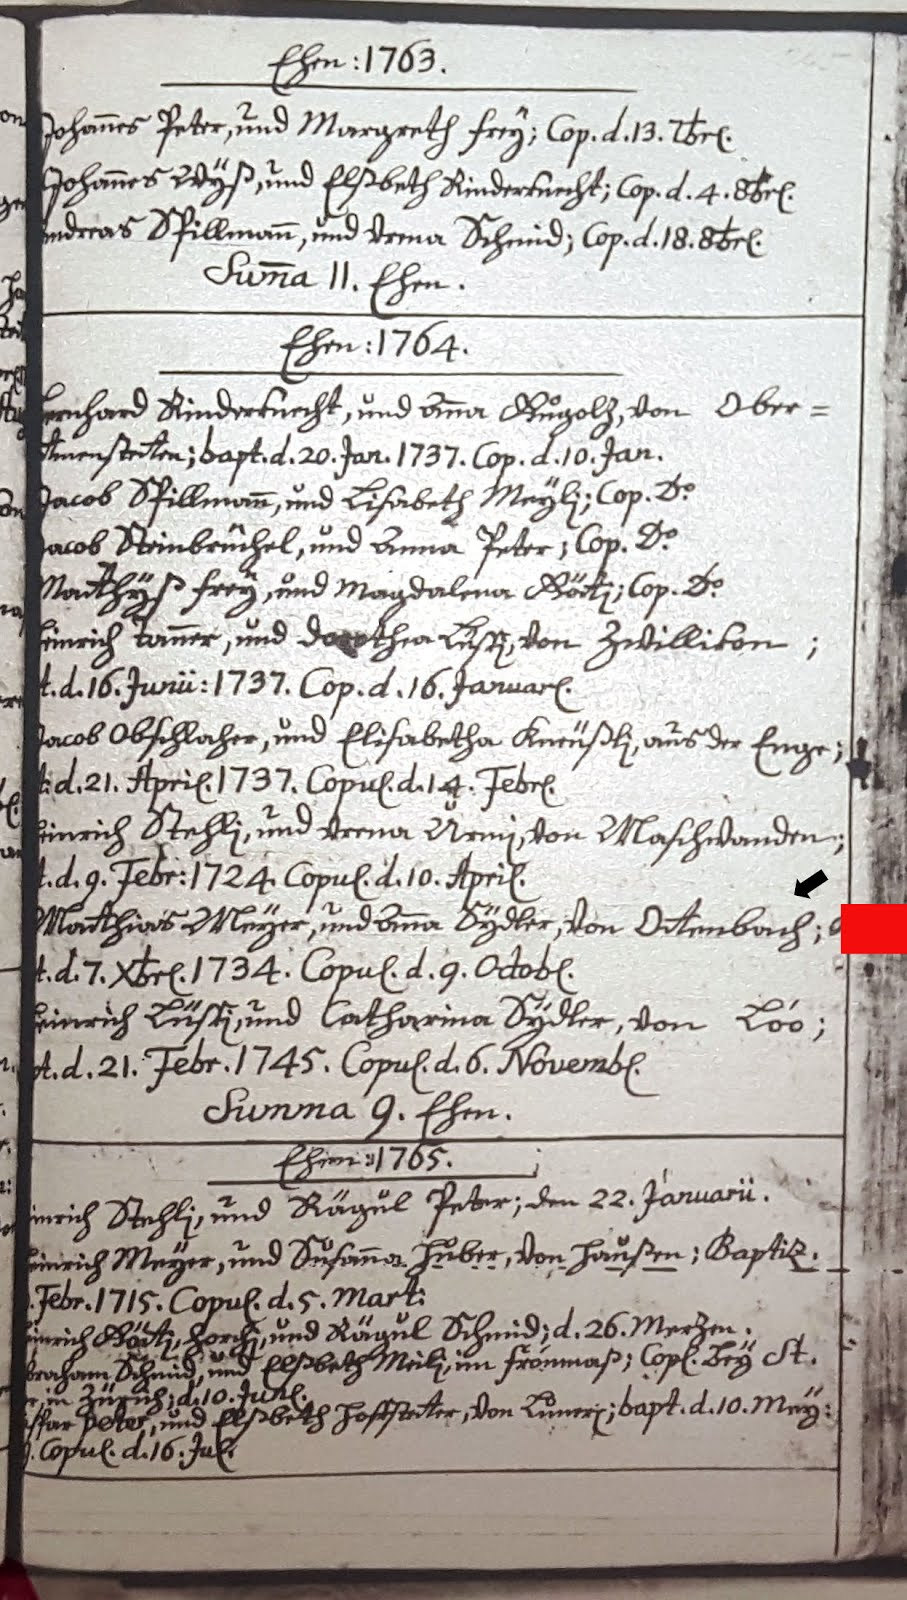 Ehen: 1763.
Johannes Peter, und Margreth Frey; Cop. d. 13. 7brl.
Johannes Wÿß, und Elßbeth Rinderknecht; Cop. d. 4. 8brl.
ndreas Spillmann, und Vrena Schmid; Cop. d. 18. 8brl.
Suma 11. Ehen.
Ehen: 1764.
ernhard Rinderknecht, und Anna Gugolz, von Ober=
tmenstetten; bapt. d. 20. Jan. 1737. Cop. d. 10. Jan.
Jacob Spillmann, und Lisabeth Meÿlj; Cop. Do
Jacob Steinbrüchel, und Anna Peter; Cop. Do
Matthÿß Freÿ, und Magdalena Götj; Cop. Do
einrich Tanner, und Dorothea Lüstj, von Zwillikon;
t. d. 16. Junii: 1737. Cop. d. 16. Januarl.
Jacob Obschlaher, und Elisabetha Kneüßlj, aus der Enge;
t: d. 21. April. 1737. Copul. d. 14. Febrl.
einrich Stehlj, und Vrena Ürmj, von Maschwanden;
t. d. 9. Febr: 1724. Copul. d. 10. April.
Matthias Meÿer, und Anna Sÿdler, von Ottenbach;
t. d. 7. Xbrl. 1734. Copul. d. 9. Octobl.
einrich Lüstj, und Catharina Sÿdler, von Lóo;
t. d. 21. Febr. 1745. Copul. d. 6. Novembl.
Summa 9. Ehen.
Ehen: 1765.
inrich Stehlj, und Rägul Peter; den 22. Januarii.
einrich Meÿer, und Susanna Huber, von Haußen; Baptiz.
. Febr. 1715. Copul. d. 5. Mart:
inrich Götj, und Rägul Schmid; d. 26. Merzen.
braham Schmid, und Elßbeth Meilj, im Frönmaß; Copl. beÿ St.
r, in Zürich; d. 10. Junl.
ßpar Peter, und Elßbeth Hoffstetter, von Lunerj; bapt. d. 10. Meÿ:
. Copul. d. 16. Jul.